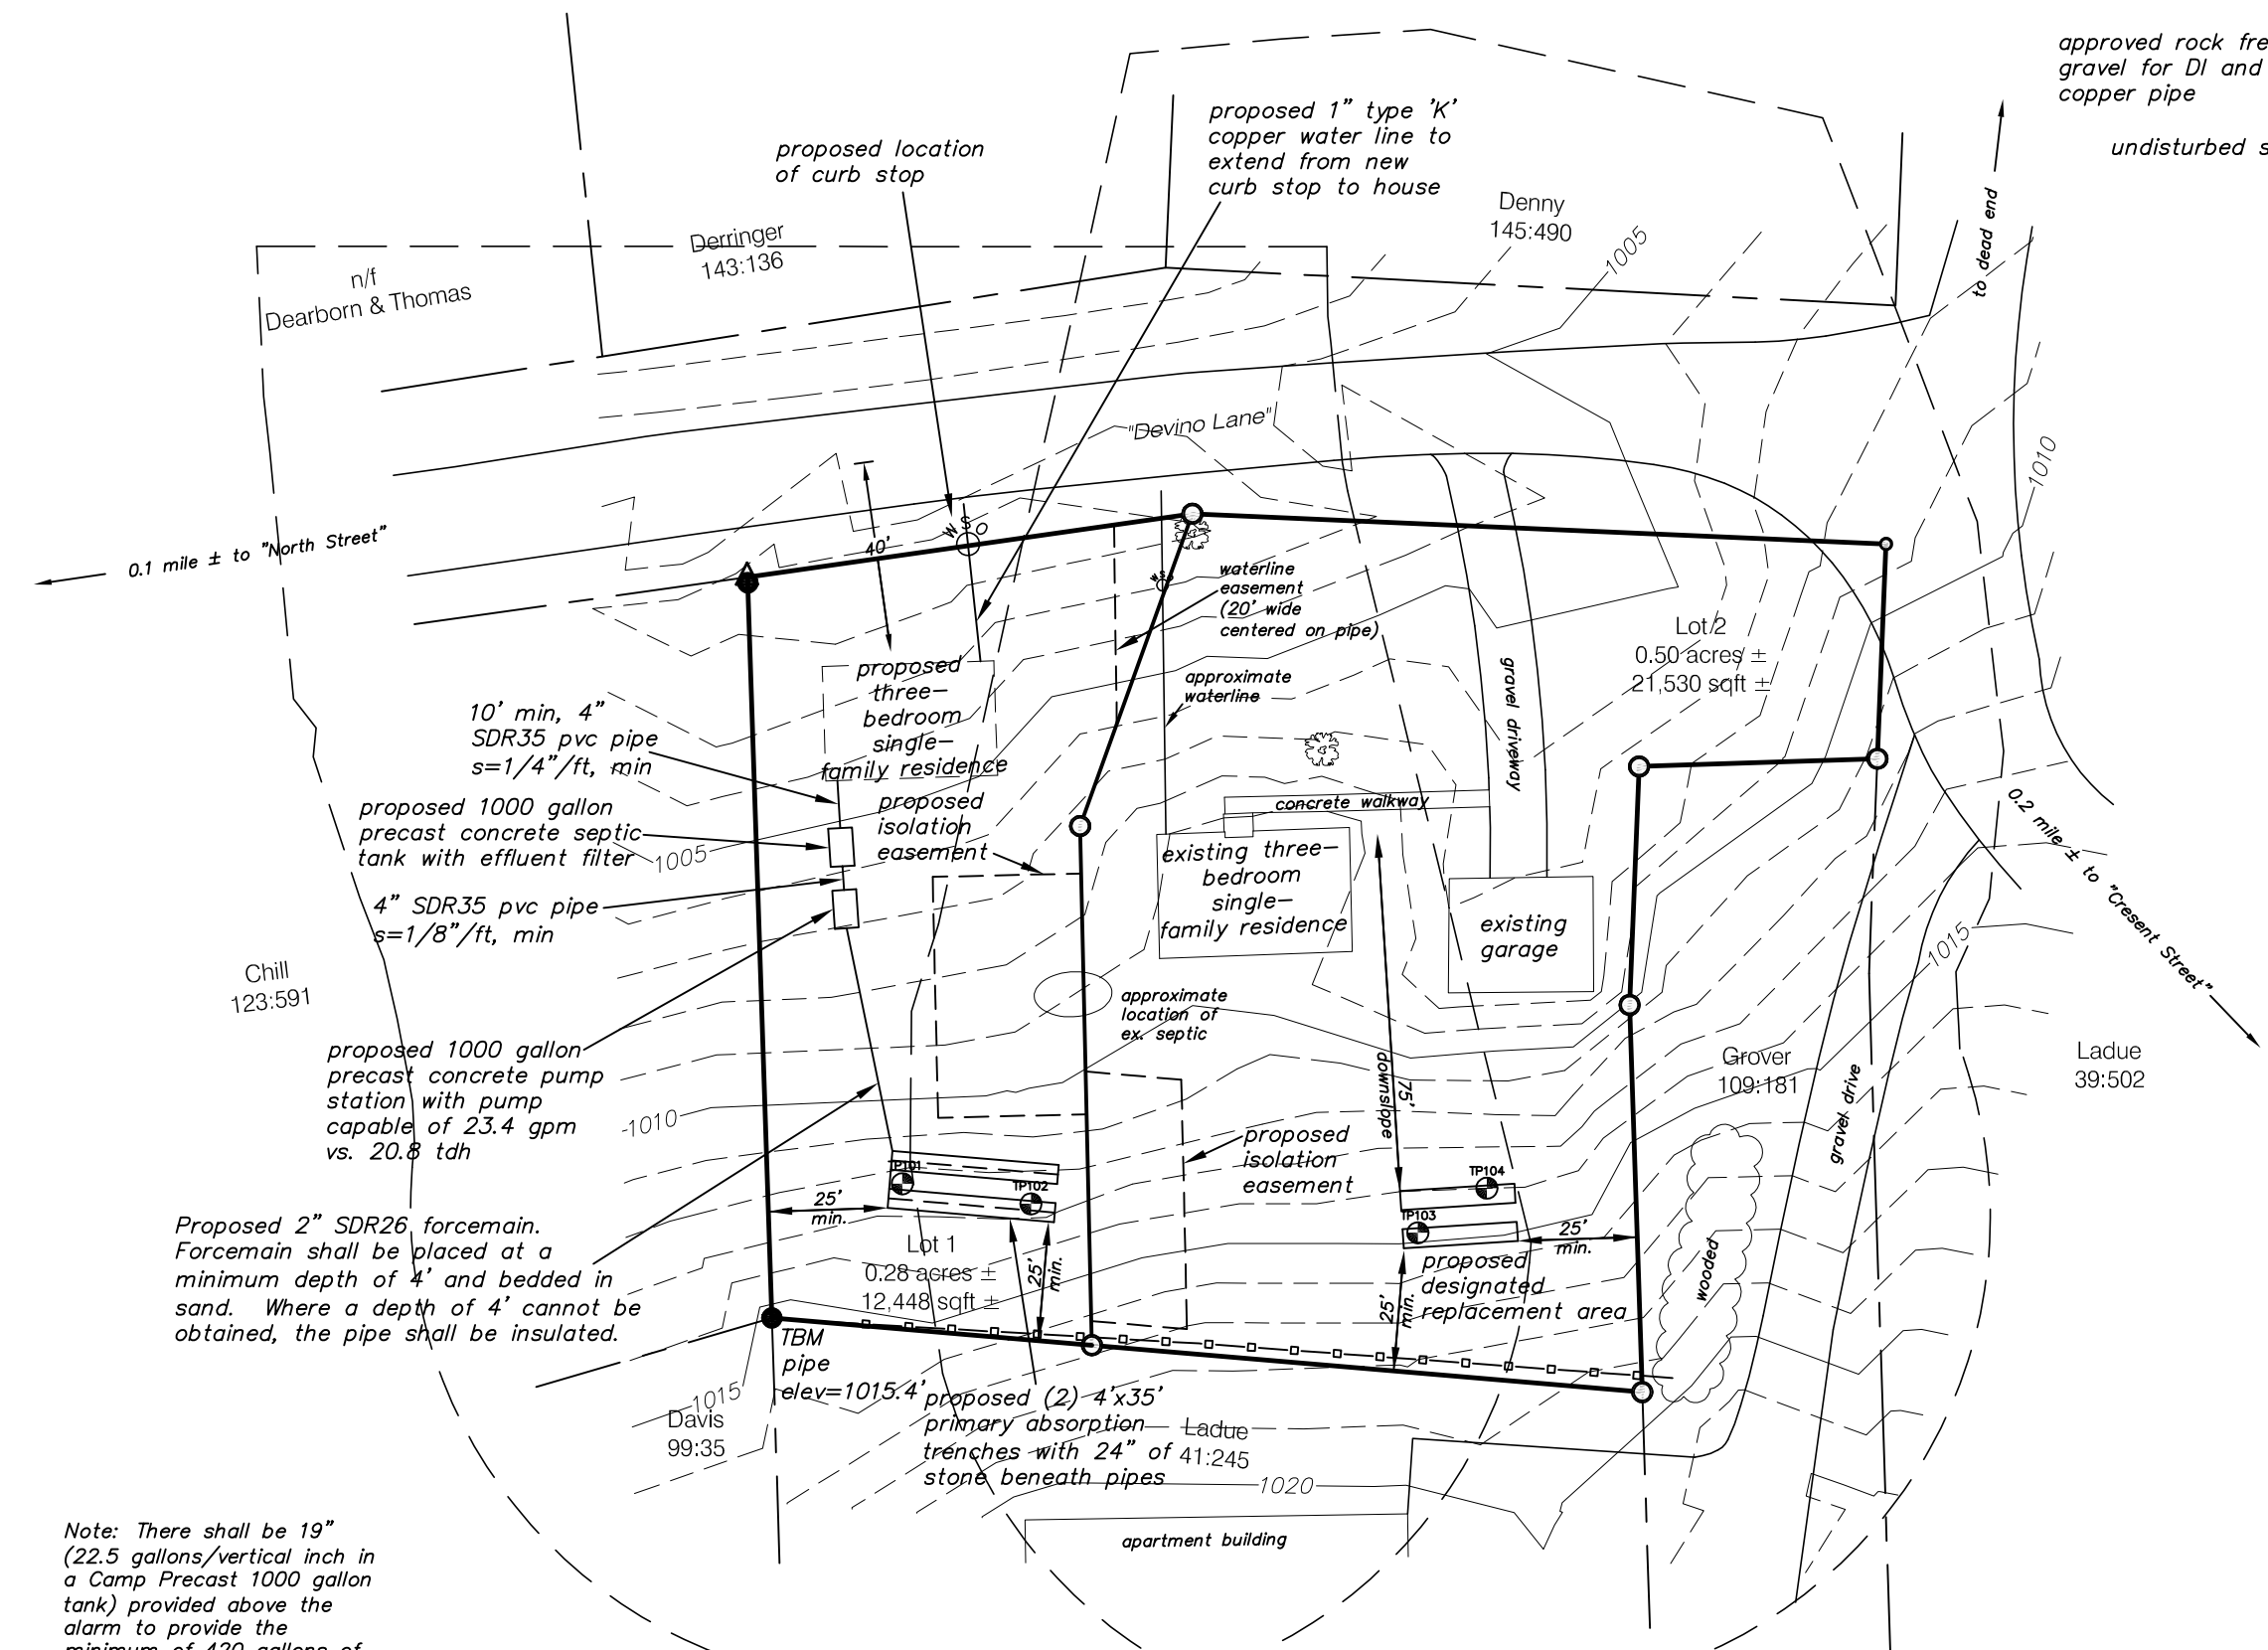 approved rock fre
gravel for DI and
copper pipe
undisturbed s
proposed 1" type 'K'
copper water line to
extend from new
curb stop to house
proposed location
of curb stop
Denny
145:490
1005
to dead end
Derringer
143:136
n/f
Dearborn & Thomas
"Devino Lane"
1010
0.1 mile ± to "North Street"
40'
W S O
W S O
waterline
easement
(20' wide
centered on pipe)
approximate
waterline
Lot 2
0.50 acres ±
21,530 sqft ±
gravel driveway
proposed
three-
bedroom
single-
family residence
10' min, 4"
SDR35 pvc pipe
s=1/4"/ft, min
proposed 1000 gallon
precast concrete septic
tank with effluent filter
1005
proposed
isolation
easement
concrete walkway
existing three-
bedroom
single-
family residence
existing
garage
0.2 mile ± to "Cresent Street"
4" SDR35 pvc pipe
s=1/8"/ft, min
1015
Chill
123:591
approximate
location of
ex. septic
proposed 1000 gallon
precast concrete pump
station with pump
capable of 23.4 gpm
vs. 20.8 tdh
1010
75'
downslope
Grover
109:181
gravel drive
Ladue
39:502
proposed
isolation
easement
TP101
TP102
TP104
TP103
25'
min.
25'
min.
25'
min.
25'
min.
Proposed 2" SDR26 forcemain.
Forcemain shall be placed at a
minimum depth of 4' and bedded in
sand. Where a depth of 4' cannot be
obtained, the pipe shall be insulated.
Lot 1
0.28 acres ±
12,448 sqft ±
proposed
designated
replacement area
wooded
TBM
pipe
elev=1015.4'
1015
Davis
99:35
proposed (2) 4'x35'
primary absorption
trenches with 24" of
stone beneath pipes
Ladue
41:245
1020
apartment building
Note: There shall be 19"
(22.5 gallons/vertical inch in
a Camp Precast 1000 gallon
tank) provided above the
alarm to provide the
minimum of 420 gallons of